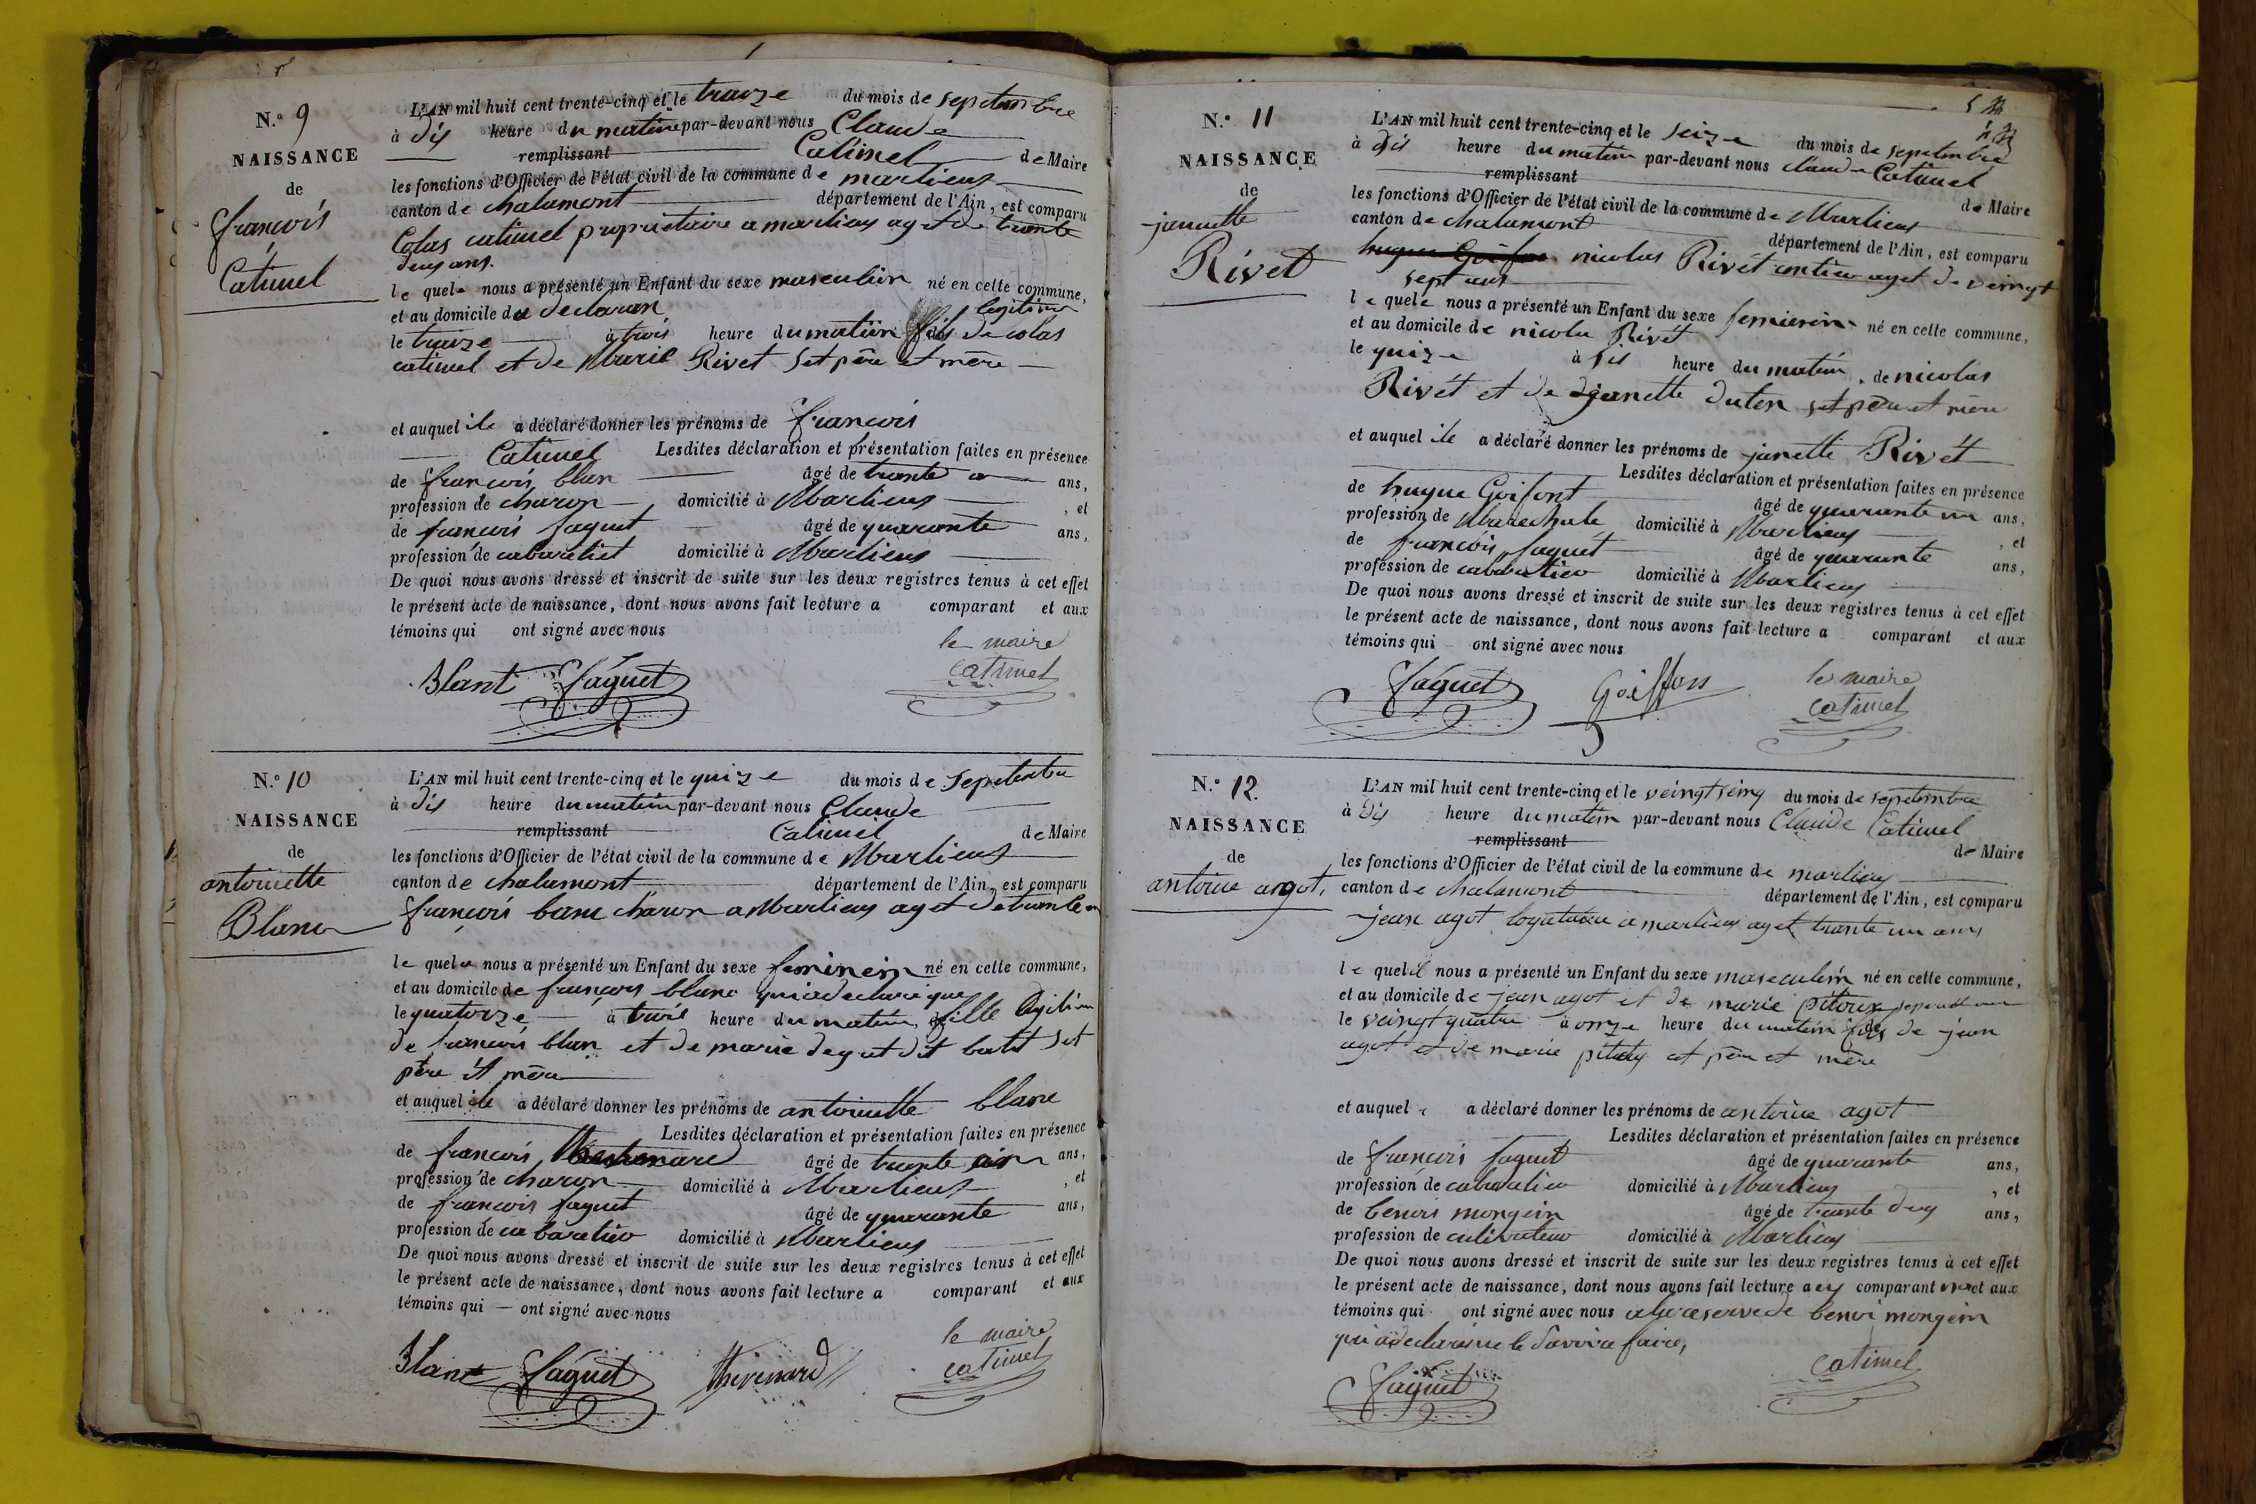 N.° 9
NAISSANCE
de
françois
Catimel
L'AN mil huit cent trente-cinq et le traize du mois de septembre
à dis heure du matin par-devant nous Claude
Catimel de Maire
remplissant
les fonctions d'Officier de l'état civil de la commune de marlieus
canton de chalamont département de l'Ain, est comparu
Colas catimel propriétaire a marlieus aget de trante
deus ans.
le quele nous a présenté un Enfant du sexe masculien né en cette commune,
et au domicile du declaran
le traize à trois heure du matin fils legitime de colas
catimel et de Marie Rivet set père et mère
et auquel ile a déclaré donner les prénoms de françois
Catimel Lesdites déclaration et présentation faites en présence
de françois blan âgé de trante ans,
profession de charon domicilié à Marlieus , et
de françois faguet âgé de quarante ans,
profession de cabaretiet domicilié à Marlieus
De quoi nous avons dressé et inscrit de suite sur les deux registres tenus à cet effet
le présent acte de naissance, dont nous avons fait lecture a comparant et aux
témoins qui ont signé avec nous
le maire
Blant faguet catimel
N.° 10
NAISSANCE
de
antoinette
Blanc
L'AN mil huit cent trente-cinq et le quize du mois de septembre
à dis heure du matin par-devant nous Claude
Catimel de Maire
remplissant
les fonctions d'Officier de l'état civil de la commune de Marlieus
canton de chalamont département de l'Ain, est comparu
françois banc charon a Marlieus aget de trante
le quele nous a présenté un Enfant du sexe feminein né en cette commune,
et au domicile de françois blanc qui a declaré que
le quatorze à trois heure du matin fille
de françois blan et de marie set
père et mère
et auquel ile a déclaré donner les prénoms de antoinette blanc
Lesdites déclaration et présentation faites en présence
de françois âgé de trante ans,
profession de charon domicilié à Marlieus , et
de françois faguet âgé de quarante ans,
profession de cabaretier domicilié à Marlieus
De quoi nous avons dressé et inscrit de suite sur les deux registres tenus à cet effet
le présent acte de naissance, dont nous avons fait lecture a comparant et aux
témoins qui ont signé avec nous
le maire
Blant faguet thevenard catimel
N.° 11
NAISSANCE
de
jeanette
Rivet
L'AN mil huit cent trente-cinq et le seize du mois de septembre
à dis heure du matin par-devant nous claude Catimel
remplissant de Maire
les fonctions d'Officier de l'état civil de la commune de Marlieus
canton de chalamont département de l'Ain, est comparu
nicolas Rivét aget de veingt
sept ans
le quele nous a présenté un Enfant du sexe né en cette commune,
et au domicile de nicola Rivét
le quize à sis heure du matin, de nicolas
Rivét et de janette duten set père et mère
et auquel ile a déclaré donner les prénoms de janette Rivét
Lesdites déclaration et présentation faites en présence
de hugue Goifont âgé de quarante un ans,
profession de Marechale domicilié à Marlieus , et
de françois faguét âgé de quarante ans,
profession de cabaretier domicilié à Marlieus
De quoi nous avons dressé et inscrit de suite sur les deux registres tenus à cet effet
le présent acte de naissance, dont nous avons fait lecture a comparant et aux
témoins qui ont signé avec nous
le maire
faguet Goiffon catimel
N.° 12.
NAISSANCE
de
antoine agot,
L'AN mil huit cent trente-cinq et le veingt seinq du mois de septembre
à dis heure du matin par-devant nous Claude Catimel
remplissant de Maire
les fonctions d'Officier de l'état civil de la commune de marlieus
canton de chalamont département de l'Ain, est comparu
jean agot a marlieus aget trante un ans
le quel nous a présenté un Enfant du sexe masculein né en cette commune,
et au domicile de jean agot et de marie
le veingt quatre à onze heure du matin fils de jean
agot et de marie set père et mère
et auquel a déclaré donner les prénoms de antoine agot
Lesdites déclaration et présentation faites en présence
de françois faguet âgé de quarante ans,
profession de cabaretier domicilié à Marlieus , et
de benois mongein âgé de trante deus ans,
profession de cultivateur domicilié à Marlieus
De quoi nous avons dressé et inscrit de suite sur les deux registres tenus à cet effet
le présent acte de naissance, dont nous avons fait lecture a comparant et aux
témoins qui ont signé avec nous a la reserve de benoi mongein
qui a declaré ne le savoire faire,
faguet catimel